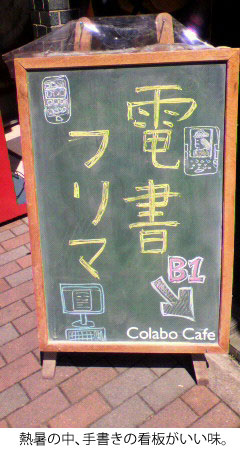 電書
フリマ
B1
Colabo Cafe
熱暑の中、手書きの看板がいい味。